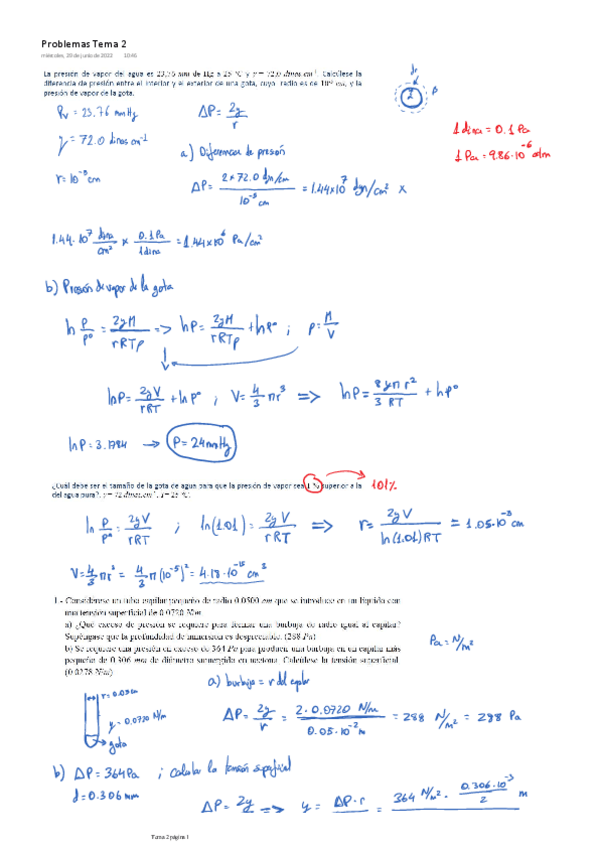 Problemas Tema 2
miércoles, 20 de junio de 2022 10:46
La presión de vapor del agua es 23,76 mm de Hg a 25 °C y γ = 72,0 dinas cm⁻¹. Calcúlese la
diferencia de presión entre el interior y el exterior de una gota, cuyo radio es de 10⁻⁵ cm, y la
presión de vapor de la gota.
Pv = 23.76 mmHg
ΔP = 2γ/r
γ = 72.0 dinas cm⁻¹
1 dina = 0.1 Pa
1 Pa = 9.86·10⁻⁶ atm
a) Diferencia de presión
r = 10⁻⁵ cm
ΔP = 2×72.0 dyn/cm / 10⁻⁵ cm = 1.44×10⁷ dyn/cm² x
1.44·10⁷ dina/cm² x 0.1 Pa/1 dina = 1.44×10⁶ Pa/cm²
b) Presión de vapor de la gota
ln P/P° = 2γM/rRTρ => ln P = 2γM/rRTρ + ln P° ; ρ = M/V
ln P = 2γV/rRT + ln P° ; V = 4/3 πr³ => ln P = 8γπr²/3RT + ln P°
ln P = 3.1784 → P = 24 mmHg
¿Cuál debe ser el tamaño de la gota de agua para que la presión de vapor sea 1 % superior a la
del agua pura?. γ = 72 dinas.cm⁻¹, T = 25 °C.
101%
ln P/P° = 2γV/rRT ; ln(1.01) = 2γV/rRT => r = 2γV/ln(1.01)RT = 1.05·10⁻³ cm
V = 4/3 πr³ = 4/3 π(10⁻⁵)³ = 4.18·10⁻¹⁵ cm³
1.- Considérese un tubo capilar pequeño de radio 0.0500 cm que se introduce en un líquido con
una tensión superficial de 0.0720 N/m.
a) ¿Qué exceso de presión se requiere para formar una burbuja de radio igual al capilar?
Supóngase que la profundidad de inmersión es despreciable. (288 Pa)
b) Se requiere una presión en exceso de 364 Pa para producir una burbuja en un capilar más
pequeño de 0.306 mm de diámetro sumergido en acetona. Calcúlese la tensión superficial.
(0.0278 N/m)
Pa = N/m²
a) burbuja = r del capilar
r = 0.05 cm
γ = 0.0720 N/m
gota
ΔP = 2γ/r = 2·0.0720 N/m / 0.05·10⁻² m = 288 N/m² = 288 Pa
b) ΔP = 364 Pa ; calcular la tensión superficial
d = 0.306 mm
ΔP = 2γ/r => γ = ΔP·r = 364 N/m² · 0.306·10⁻³/2 m
Tema 2 página 1